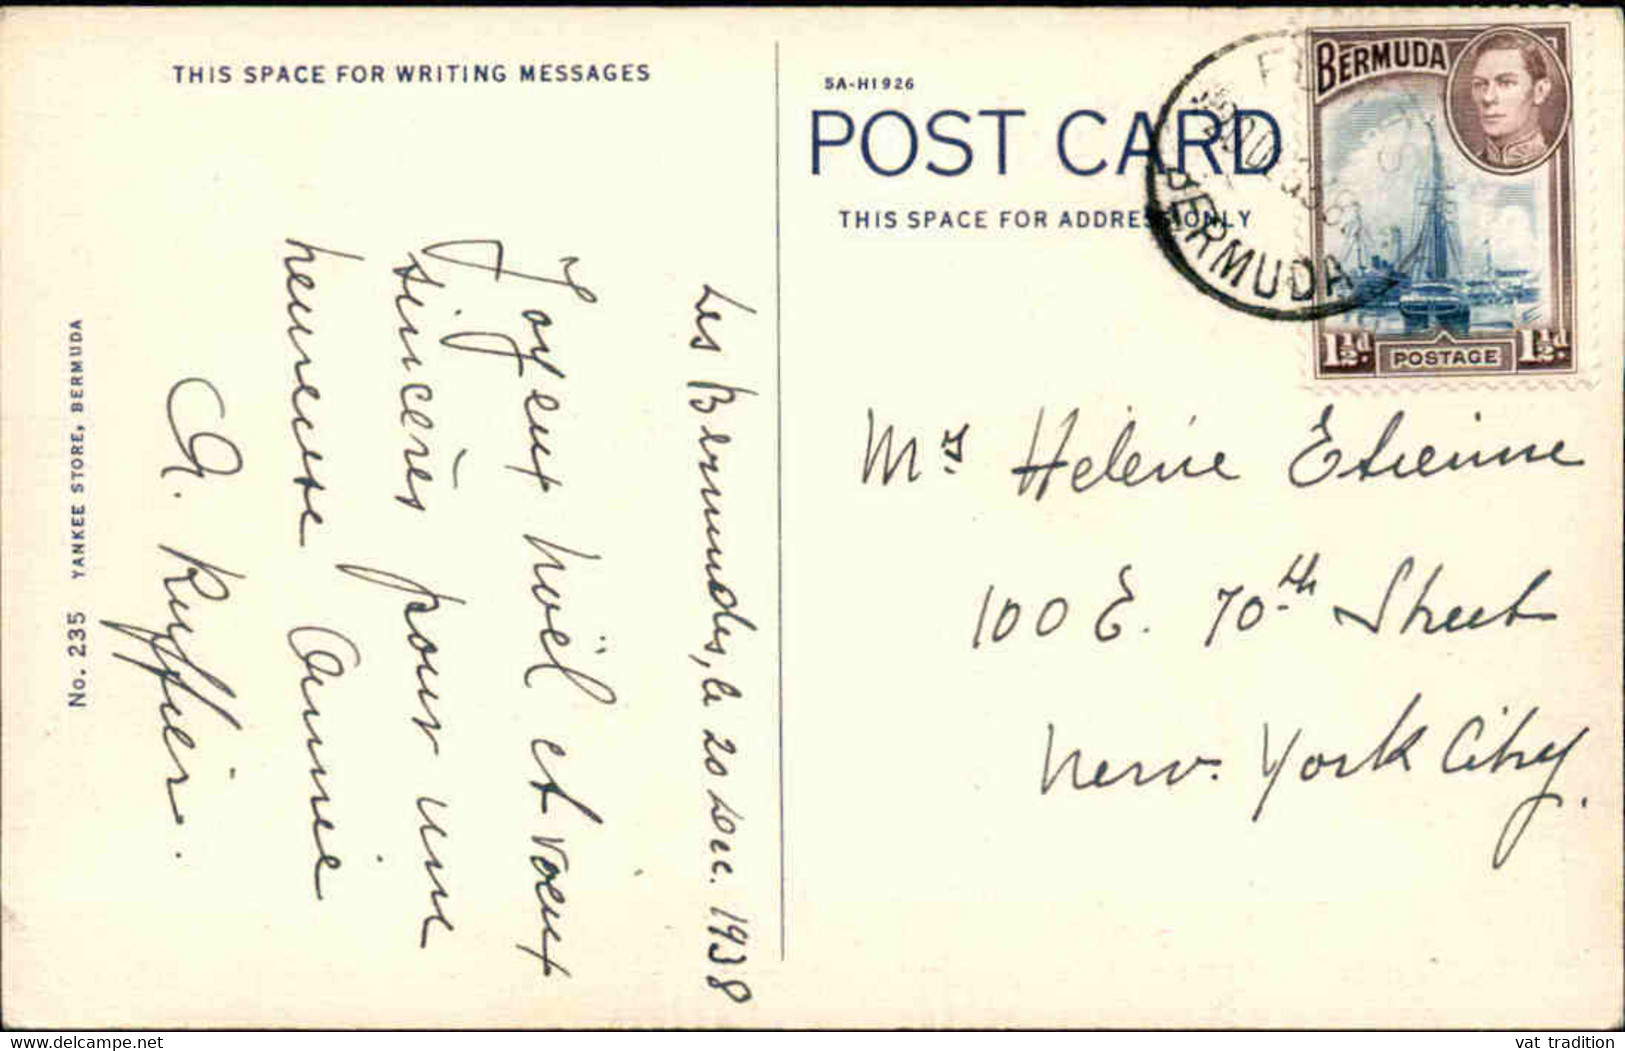 THIS SPACE FOR WRITING MESSAGES
Les Bermudes, le 20 Dec. 1938
Joyeux Noël et voeux
sincères pour une
heureuse Année
No. 235 YANKEE STORE, BERMUDA
5A-H1926
POST CARD
THIS SPACE FOR ADDRESS ONLY
BERMUDA
BERMUDA
1½d POSTAGE 1½d
Mrs. Helene Etienne
100 E. 70th Street
New York City.
vat tradition